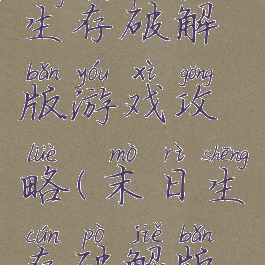 生存破解
bǎn yóu xì gōng
版游戏攻
lüè mò rì shēng
略(末日生
cún pò jiě bǎn
存破解版